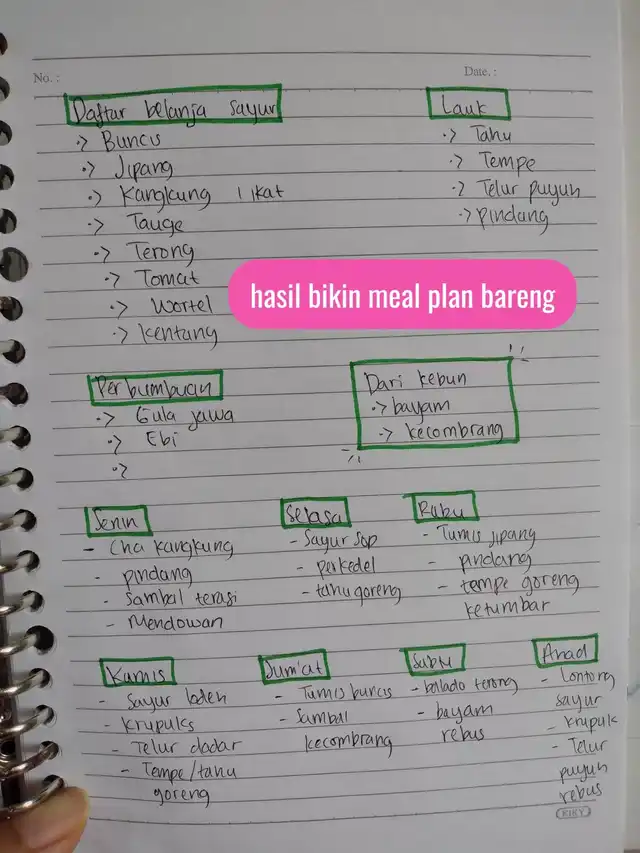 No. :
Date. :
Daftar belanja sayur
.> Buncis
.> Jipang
.> Kangkung 1 ikat
.> Tauge
.> Terong
.> Tomat
.> Wortel
.> Kentang
Lauk
.> Tahu
.> Tempe
.> Telur puyuh
.> pindang
hasil bikin meal plan bareng
Perbumbuan
.> Gula jawa
.> Ebi
.>
Dari kebun
.> bayam
.> kecombrang
Senin
- Cha kangkung
- pindang
- Sambal terasi
- Mendowan
Selasa
- Sayur sop
- perkedel
- tahu goreng
Rabu
- Tumis jipang
- pindang
- tempe goreng
ketumbar
Kamis
- Sayur loden
- krupuks
- Telur dadar
- Tempe/tahu
goreng
Jum'at
- Tumis buncis
- Sambal
kecombrang
Sabtu
- balado terong
- bayam
rebus
Ahad
- Lontong
sayur
- krupuk
- Telur
puyuh
rebus
KIKY